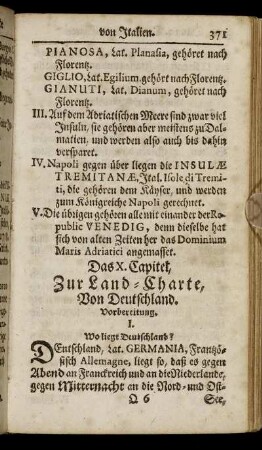 von Italien. 371
PIANOSA, Lat. Planasia, gehöret nach
Florentz.
GIGLIO, Lat. Egilium gehört nach Florentz.
GIANUTI, Lat. Dianum, gehöret nach
Florentz.
III. Auf dem Adriatischen Meere sind zwar viel
Insuln, sie gehören aber meistens zu Dal-
matien, und werden also auch bis dahin
versparet.
IV. Napoli gegen über liegen die INSULÆ
TREMITANÆ, Ital. Isole di Tremi-
ti, die gehören dem Käyser, und werden
zum Königreiche Napoli gerechnet.
V. Die übigen gehören alle mit einander der Re-
public VENEDIG, denn dieselbe hat
sich von alten Zeiten her das Dominium
Maris Adriatici angemasset.
Das X. Capitel,
Zur Land-Charte,
Von Deutschland.
Vorbereitung.
I.
Wo liegt Deutschland?
DEutschland, Lat. GERMANIA, Frantzö-
sisch Allemagne, liegt so, daß es gegen
Abend an Franckreich und an die Niederlande,
gegen Mitternacht an die Nord- und Ost-
Q 6 See,